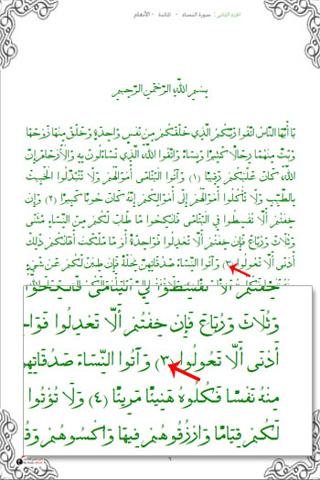 الجزء الثاني: سورة النساء - المائدة - الأنعام
بِسْمِ اللَّهِ الرَّحْمَنِ الرَّحِيمِ
يَا أَيُّهَا النَّاسُ اتَّقُوا رَبَّكُمُ الَّذِي خَلَقَكُمْ مِنْ نَفْسٍ وَاحِدَةٍ وَخَلَقَ مِنْهَا زَوْجَهَا
وَبَثَّ مِنْهُمَا رِجَالًا كَثِيرًا وَنِسَاءً وَاتَّقُوا اللَّهَ الَّذِي تَسَاءَلُونَ بِهِ وَالْأَرْحَامَ إِنَّ
اللَّهَ كَانَ عَلَيْكُمْ رَقِيبًا (١) وَآتُوا الْيَتَامَى أَمْوَالَهُمْ وَلَا تَتَبَدَّلُوا الْخَبِيثَ
بِالطَّيِّبِ وَلَا تَأْكُلُوا أَمْوَالَهُمْ إِلَى أَمْوَالِكُمْ إِنَّهُ كَانَ حُوبًا كَبِيرًا (٢) وَإِنْ
خِفْتُمْ أَلَّا تُقْسِطُوا فِي الْيَتَامَى فَانْكِحُوا مَا طَابَ لَكُمْ مِنَ النِّسَاءِ مَثْنَى
وَثُلَاثَ وَرُبَاعَ فَإِنْ خِفْتُمْ أَلَّا تَعْدِلُوا فَوَاحِدَةً أَوْ مَا مَلَكَتْ أَيْمَانُكُمْ ذَلِكَ
أَدْنَى أَلَّا تَعُولُوا (٣) وَآتُوا النِّسَاءَ صَدُقَاتِهِنَّ نِحْلَةً فَإِنْ طِبْنَ لَكُمْ عَنْ شَيْءٍ
خِفْتُمْ أَلَّا تُقْسِطُوا فِي الْيَتَامَى فَانْكِحُوا
وَثُلَاثَ وَرُبَاعَ فَإِنْ خِفْتُمْ أَلَّا تَعْدِلُوا فَوَاحِ
أَدْنَى أَلَّا تَعُولُوا (٣) وَآتُوا النِّسَاءَ صَدُقَاتِهِنَّ
مِنْهُ نَفْسًا فَكُلُوهُ هَنِيئًا مَرِيئًا (٤) وَلَا تُؤْتُوا
لَكُمْ قِيَامًا وَارْزُقُوهُمْ فِيهَا وَاكْسُوهُمْ وَقُ